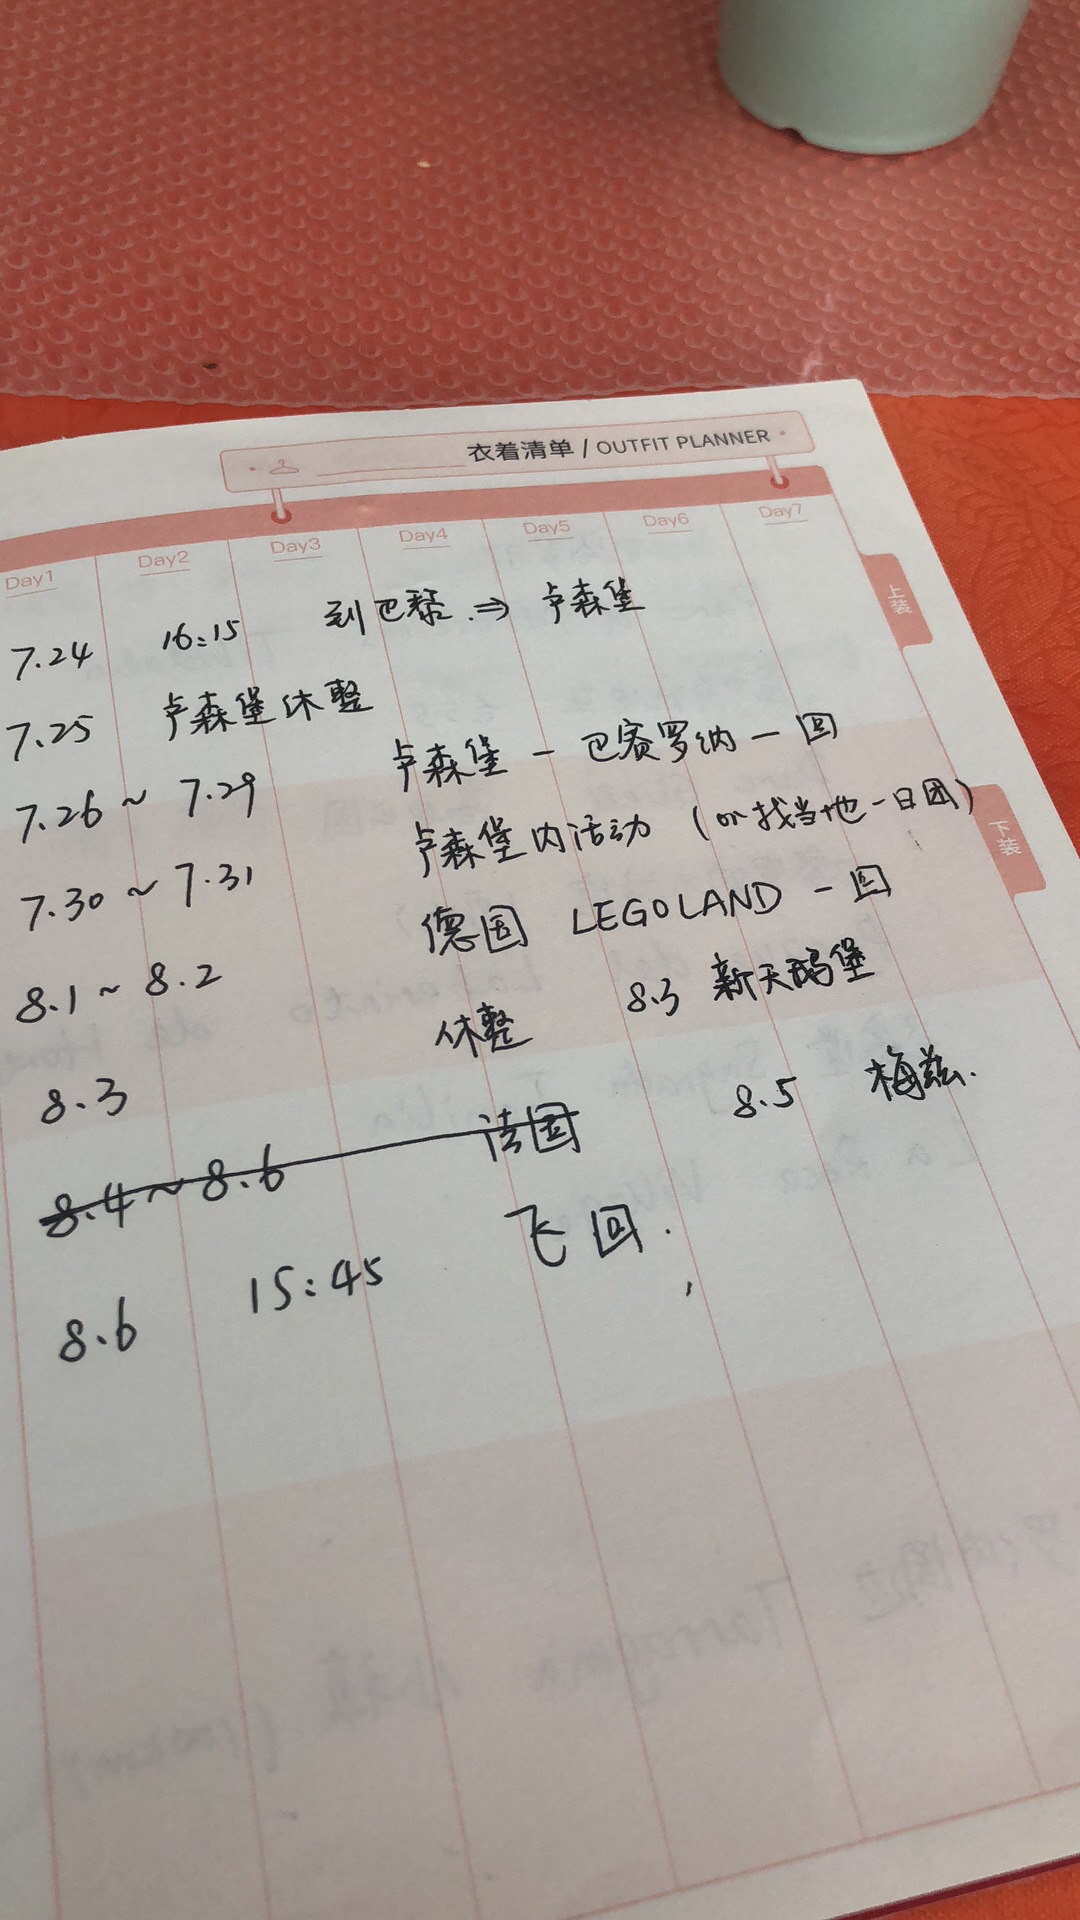 衣着清单 / OUTFIT PLANNER
Day1 Day2 Day3 Day4 Day5 Day6 Day7
上装
7.24 16:15 到巴黎 ⇒ 卢森堡
7.25 卢森堡休整
7.26 ~ 7.29 卢森堡 - 巴赛罗纳 - 回
下装
7.30 ~ 7.31 卢森堡内活动 (or找当地一日团)
8.1 ~ 8.2 德国 LEGOLAND - 回
8.3 休整 8.3 新天鹅堡
8.4 ~ 8.6 法国 8.5 梅兹.
8.6 15:45 飞回.